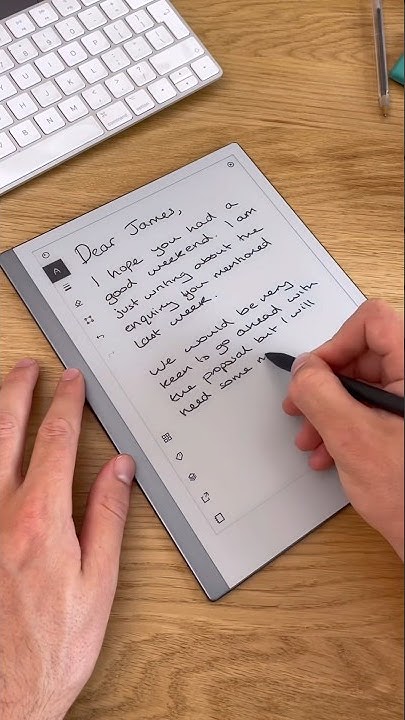 Dear James,
I hope you had a
good weekend. I am
just writing about the
enquiry you mentioned
last week.
We would be very
keen to go ahead with
the popsial but I will
need some